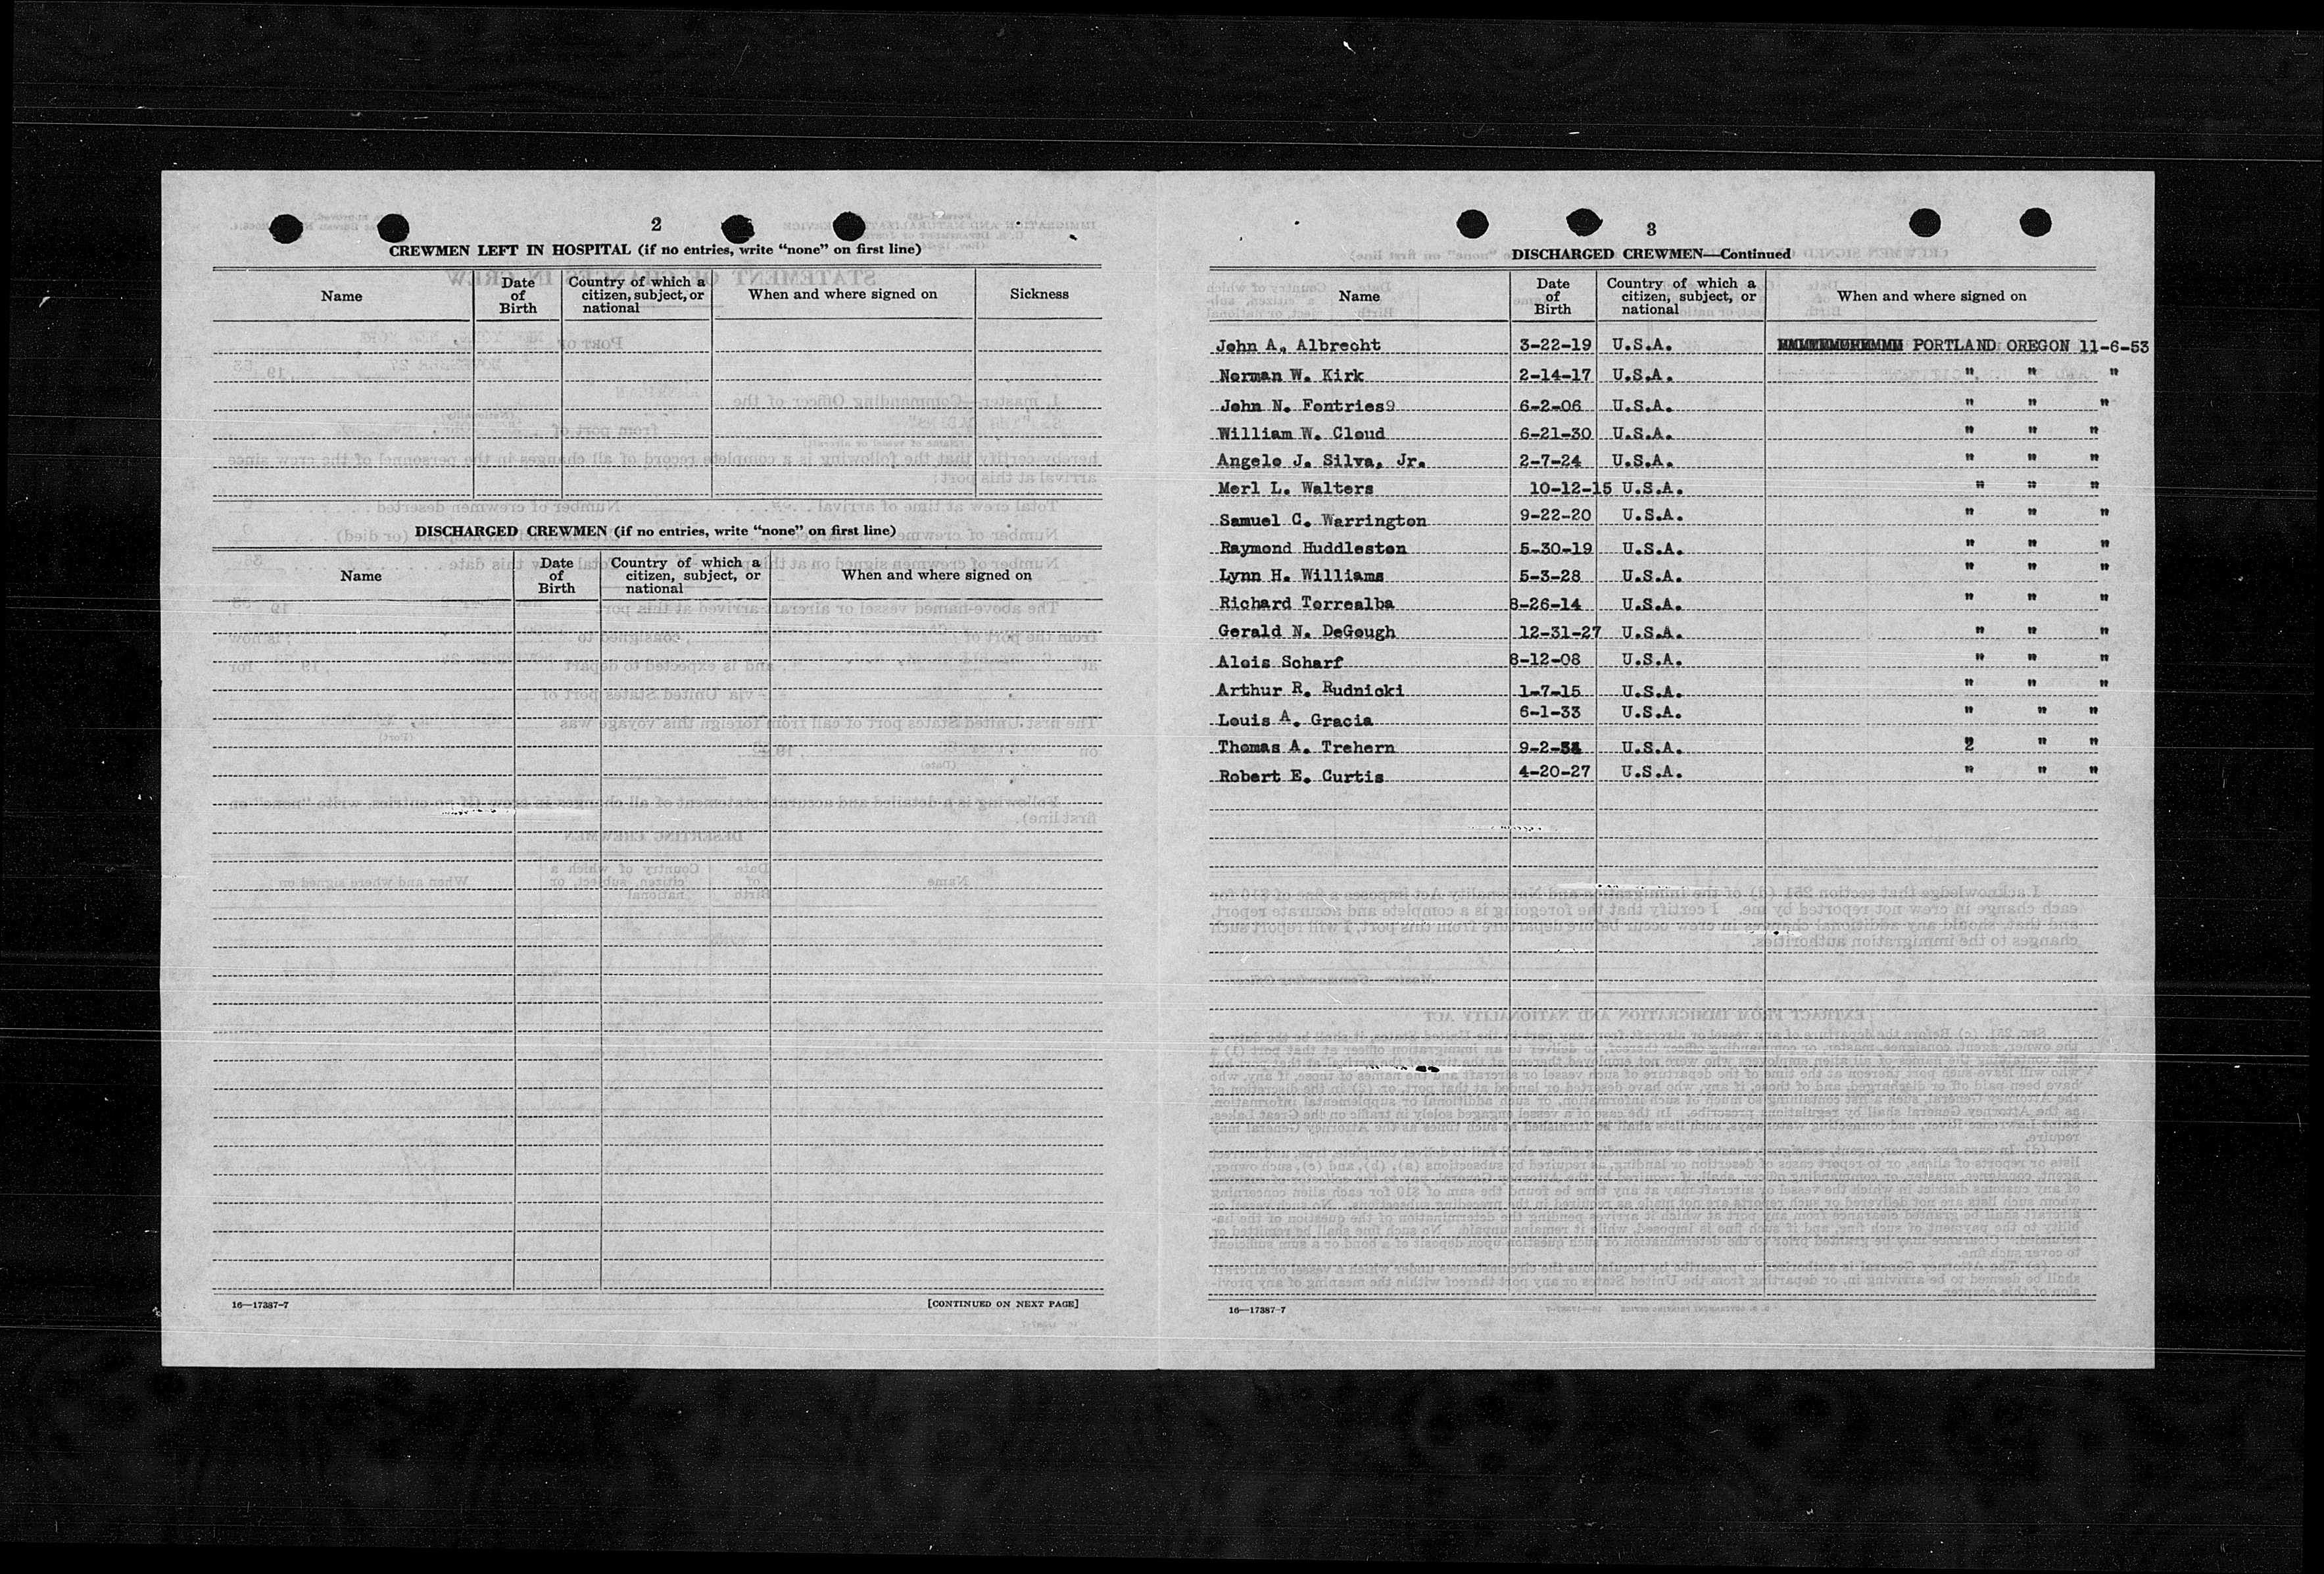 2
CREWMEN LEFT IN HOSPITAL (if no entries, write "none" on first line)
Name
Date of Birth
Country of which a citizen, subject, or national
When and where signed on
Sickness
DISCHARGED CREWMEN (if no entries, write "none" on first line)
Name
Date of Birth
Country of which a citizen, subject, or national
When and where signed on
16—17387-7
[CONTINUED ON NEXT PAGE]
3
DISCHARGED CREWMEN—Continued
Name
Date of Birth
Country of which a citizen, subject, or national
When and where signed on
John A. Albrecht 3-22-19 U.S.A. PORTLAND OREGON 11-6-53
Norman W. Kirk 2-14-17 U.S.A. " " "
John N. Fontries9 6-2-06 U.S.A. " " "
William W. Cloud 6-21-30 U.S.A. " " "
Angelo J. Silva, Jr. 2-7-24 U.S.A. " " "
Merl L. Walters 10-12-15 U.S.A. " " "
Samuel C. Warrington 9-22-20 U.S.A. " " "
Raymond Huddleston 5-30-19 U.S.A. " " "
Lynn H. Williams 5-3-28 U.S.A. " " "
Richard Torrealba 8-26-14 U.S.A. " " "
Gerald N. DeGough 12-31-27 U.S.A. " " "
Alois Scharf 8-12-08 U.S.A. " " "
Arthur R. Rudnicki 1-7-15 U.S.A. " " "
Louis A. Gracia 6-1-33 U.S.A. " " "
Thomas A. Trehern 9-2- U.S.A. " " "
Robert E. Curtis 4-20-27 U.S.A. " " "
16—17387-7